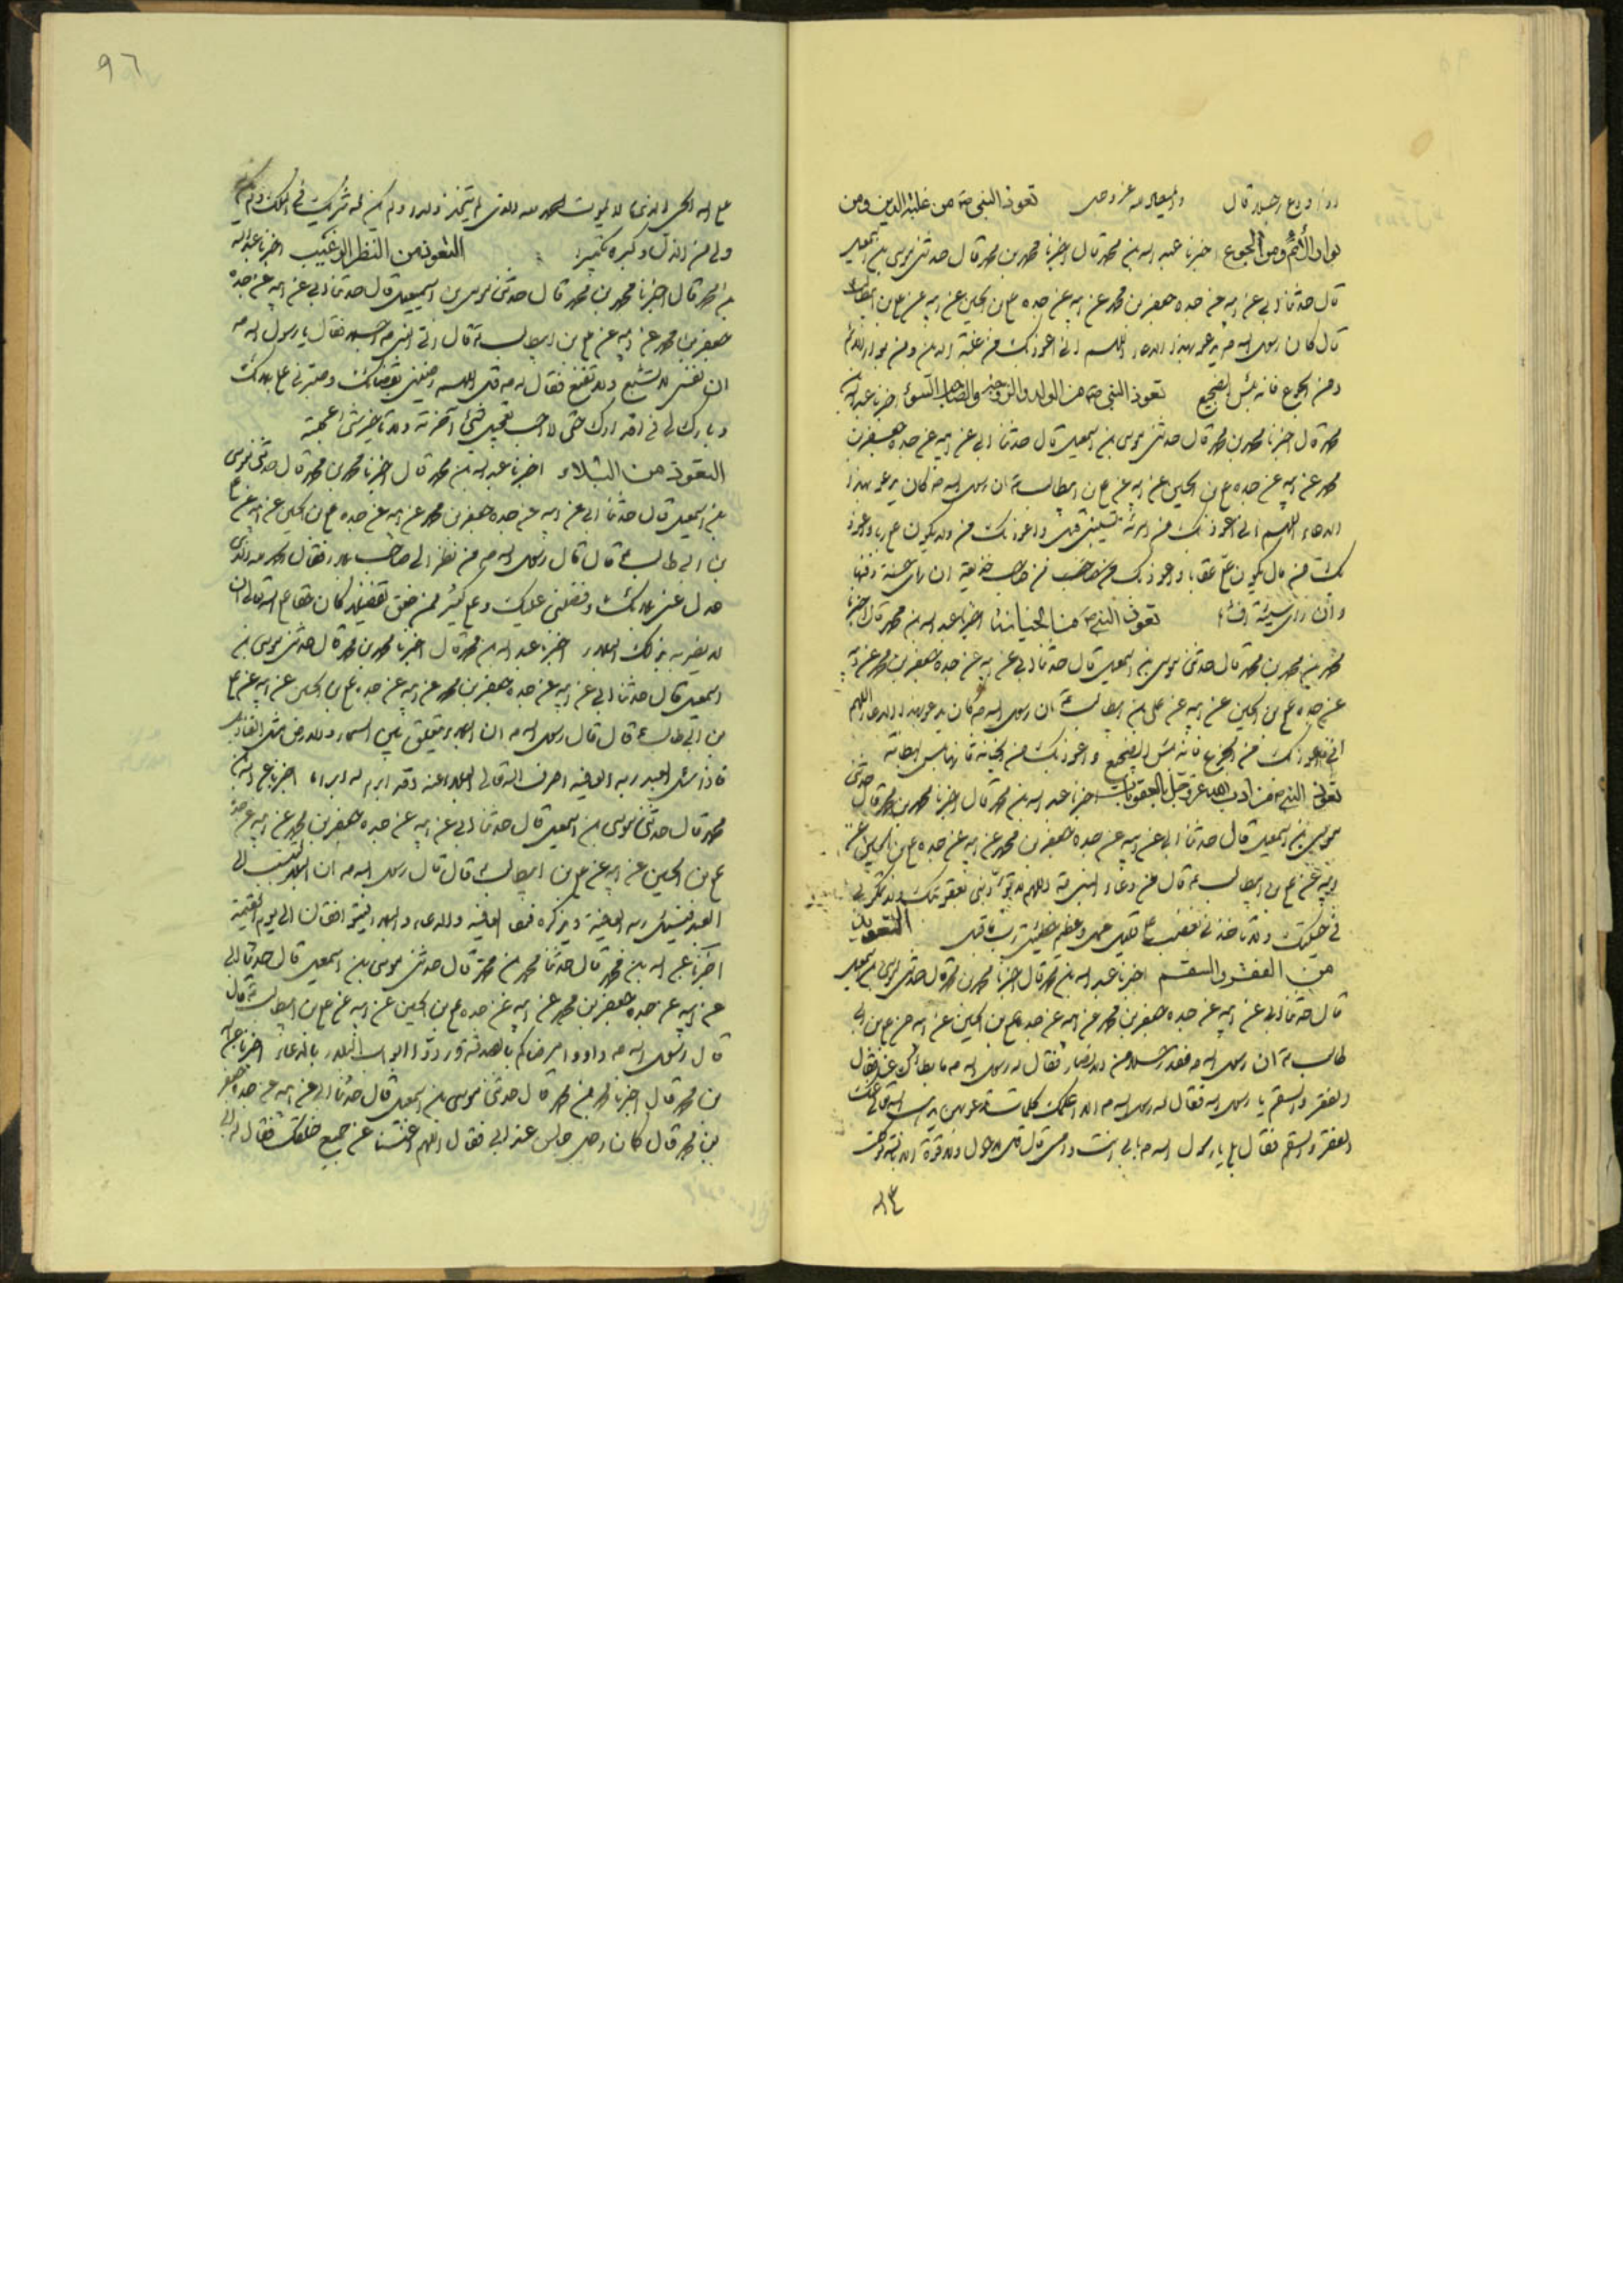 تعوذ النبي ص من غلبة الدين ومن
بوار الأيم ومن الجوع اخبرنا عبد الله بن محمد قال اخبرنا محمد بن محمد قال حدثني موسى بن اسمعيل
قال حدثنا ابي عن ابيه عن جده جعفر بن محمد عن ابيه عن جده علي بن الحسين عن ابيه عن علي بن ابيطالب
قال كان رسول الله ص يدعو بهذا الدعاء اللهم اني اعوذ بك من غلبة الدين ومن بوار الايم
ومن الجوع فانه بئس الضجيع تعوذ النبي ص من الولد والزوجة والصاحب السوء اخبرنا عبد الله بن
محمد قال اخبرنا محمد بن محمد قال حدثني موسى بن اسمعيل قال حدثنا ابي عن ابيه عن جده جعفر بن
محمد عن ابيه عن جده علي بن الحسين عن ابيه عن علي بن ابيطالب ع ان رسول الله ص كان يدعو بهذا
الدعاء اللهم اني اعوذ بك من امرأة تشيبني قبل واعوذ بك من ولد يكون علي ربا واعوذ
بك من مال يكون علي عقابا واعوذ بك من صاحب خديعة ان راى حسنة دفنها
وان راى سيئة افشاها تعوذ النبي ص من الخيانة اخبرنا عبد الله بن محمد قال اخبرنا
محمد بن محمد قال حدثني موسى بن اسمعيل قال حدثنا ابي عن ابيه عن جده جعفر بن محمد عن ابيه
عن جده علي بن الحسين عن ابيه عن علي بن ابيطالب ع ان رسول الله ص كان يدعو بهذا الدعاء اللهم
اني اعوذ بك من الجوع فانه بئس الضجيع واعوذ بك من الخيانة فانها بئس البطانة
تعوذ النبي ص من ادب الله عز وجل بالعقوبات اخبرنا عبد الله بن محمد قال اخبرنا محمد بن محمد قال حدثني
موسى بن اسمعيل قال حدثنا ابي عن ابيه عن جده جعفر بن محمد عن ابيه عن جده علي بن الحسين عن
ابيه عن علي بن ابيطالب ع قال من دعاء النبي ص اللهم لا تؤدبني بعقوبتك ولا تمكر بي
في حيلتك ولا تاخذني التعويذ
من الفقر والسقم اخبرنا عبد الله بن محمد قال اخبرنا محمد بن محمد قال حدثني موسى بن اسمعيل
قال حدثنا ابي عن ابيه عن جده جعفر بن محمد عن ابيه عن جده علي بن الحسين عن ابيه عن علي بن ابي
طالب ع ان رسول الله ص فقد رجلا من الانصار فقال له رسول الله ص ما بطأك عنا فقال
الفقر والسقم يا رسول الله فقال له رسول الله ص الا اعلمك كلمات تدعو بهن يذهب الله تعالى عنك
الفقر والسقم فقال بلى يا رسول الله ص بابي انت وامي قال قل لا حول ولا قوة الا بالله توكلت
٩٦
على الله الحي الذي لا يموت الحمد لله الذي لم يتخذ ولدا ولم يكن له شريك في الملك ولم يكن له
ولي من الذل وكبره تكبيرا التعوذ من النظر اخبرنا عبد الله
بن محمد قال اخبرنا محمد بن محمد قال حدثني موسى بن اسمعيل قال حدثنا ابي عن ابيه عن جده
جعفر بن محمد عن ابيه عن علي بن ابيطالب ع قال اتى النبي ص رجل فقال يا رسول الله ص
ان نفسي لا تشبع ولا تقنع فقال له ص قل اللهم رضني بقضائك وصبرني على بلائك
وبارك لي في اقدارك حتى لا احب تعجيل شيء اخرته ولا تاخير شيء اعجلته
التعوذ من البلاء اخبرنا عبد الله بن محمد قال اخبرنا محمد بن محمد قال حدثني موسى
بن اسمعيل قال حدثنا ابي عن ابيه عن جده جعفر بن محمد عن ابيه عن جده علي بن الحسين عن ابيه عن علي
بن ابي طالب ع قال قال رسول الله ص من نظر الى صاحب بلاء فقال الحمد لله الذي
عدل عني بلائك وفضلني عليك وعلى كثير ممن خلق تفضيلا كان حقا على الله تعالى ان
لا يضربه بذلك البلاء اخبرنا عبد الله بن محمد قال اخبرنا محمد بن محمد قال حدثني موسى بن
اسمعيل قال حدثنا ابي عن ابيه عن جده جعفر بن محمد عن ابيه عن جده علي بن الحسين عن ابيه عن علي
بن ابي طالب ع قال قال رسول الله ص ان البلاء يتعلق بين السماء والارض مثل القناديل
فاذا سئل العبد ربه العافية صرف الله تعالى البلاء عنه وقد ابرم له ابراما اخبرنا عبد الله بن
محمد قال حدثني موسى بن اسمعيل قال حدثنا ابي عن ابيه عن جده جعفر بن محمد عن ابيه عن جده
علي بن الحسين عن ابيه عن علي بن ابيطالب ع قال قال رسول الله ص ان البلاء
العبد العافية والدعاء والبلاء الى يوم القيمة
اخبرنا عبد الله بن محمد قال حدثنا محمد بن محمد قال حدثني موسى بن اسمعيل قال حدثنا ابي
عن ابيه عن جده جعفر بن محمد عن ابيه عن جده علي بن الحسين عن ابيه عن علي بن ابيطالب ع قال
قال رسول الله ص داووا مرضاكم بالصدقة وردوا ابواب البلاء بالدعاء اخبرنا عبد الله
بن محمد قال اخبرنا محمد بن محمد قال حدثني موسى بن اسمعيل قال حدثنا ابي عن ابيه عن جده جعفر
بن محمد قال كان رجل جالس عند ابي فقال اللهم اغننا عن جميع خلقك فقال له ابي